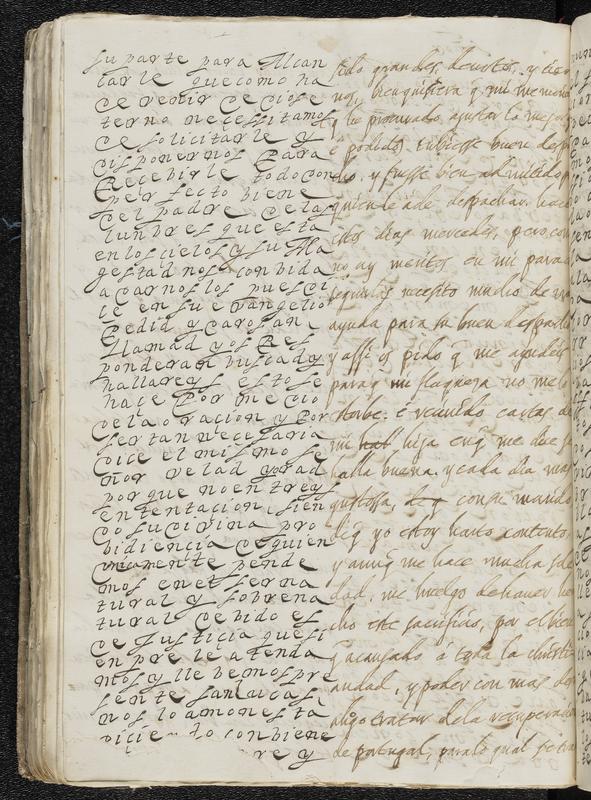 su parte para Alcan
carle que como ha
ce venir de Dios e
terno necessitamos
de solicitarle y
disponernos Para
Recebirle todo don
perfecto biene
del padre de las
lunbres que esta
en los cielos y su Ma
gestad nos conbida
a darnoslos pues di
ce en su evangelio
Pedid y daros an
llamad y os Res
ponderan buscad y
hallareys esto se
hace Por medio
de la oracion y Por
ser tan necesaria
dice el mismo se
ñor velad y orad
por que no entreys
en tentacion sien
do su divina pro
bidiencia de quien
unicamente pende
mos en el ser na
tural y sobrena
tural debido es
de justicia que si
enpre le atenda
mos y llebemos pre
sente San Lucas
nos lo amonesta
diciendo conbiene
rey
sido grandes, deuotos, y tier
nos, bien quisiera q mi memoria
y he procurado ajustar lo mejor
é podido, tubiesse buen despa
cho, y fuesse bien admitido, q
quien le a de despachar, hace
estos dias mercedes, pero como
no ay meritos en mi para c
seguirlas necesito mucho de vra
ayuda para su buen despacho
y assi os pido q me ayudeis
para q mi flaqueza no me lo
estorbe. é reciuido cartas de
mi hija en q me dice se
halla buena, y cada dia mas
gustossa, con su marido
de q yo estoy harto contento,
y aunq me hace mucha sole
dad, me huelgo de hauer he
cho este sacrificio, por el bien
q a causado á toda la christi
andad, y poder con mas des
aogo tratar de la recuperacion
de portugal, para lo qual se tra